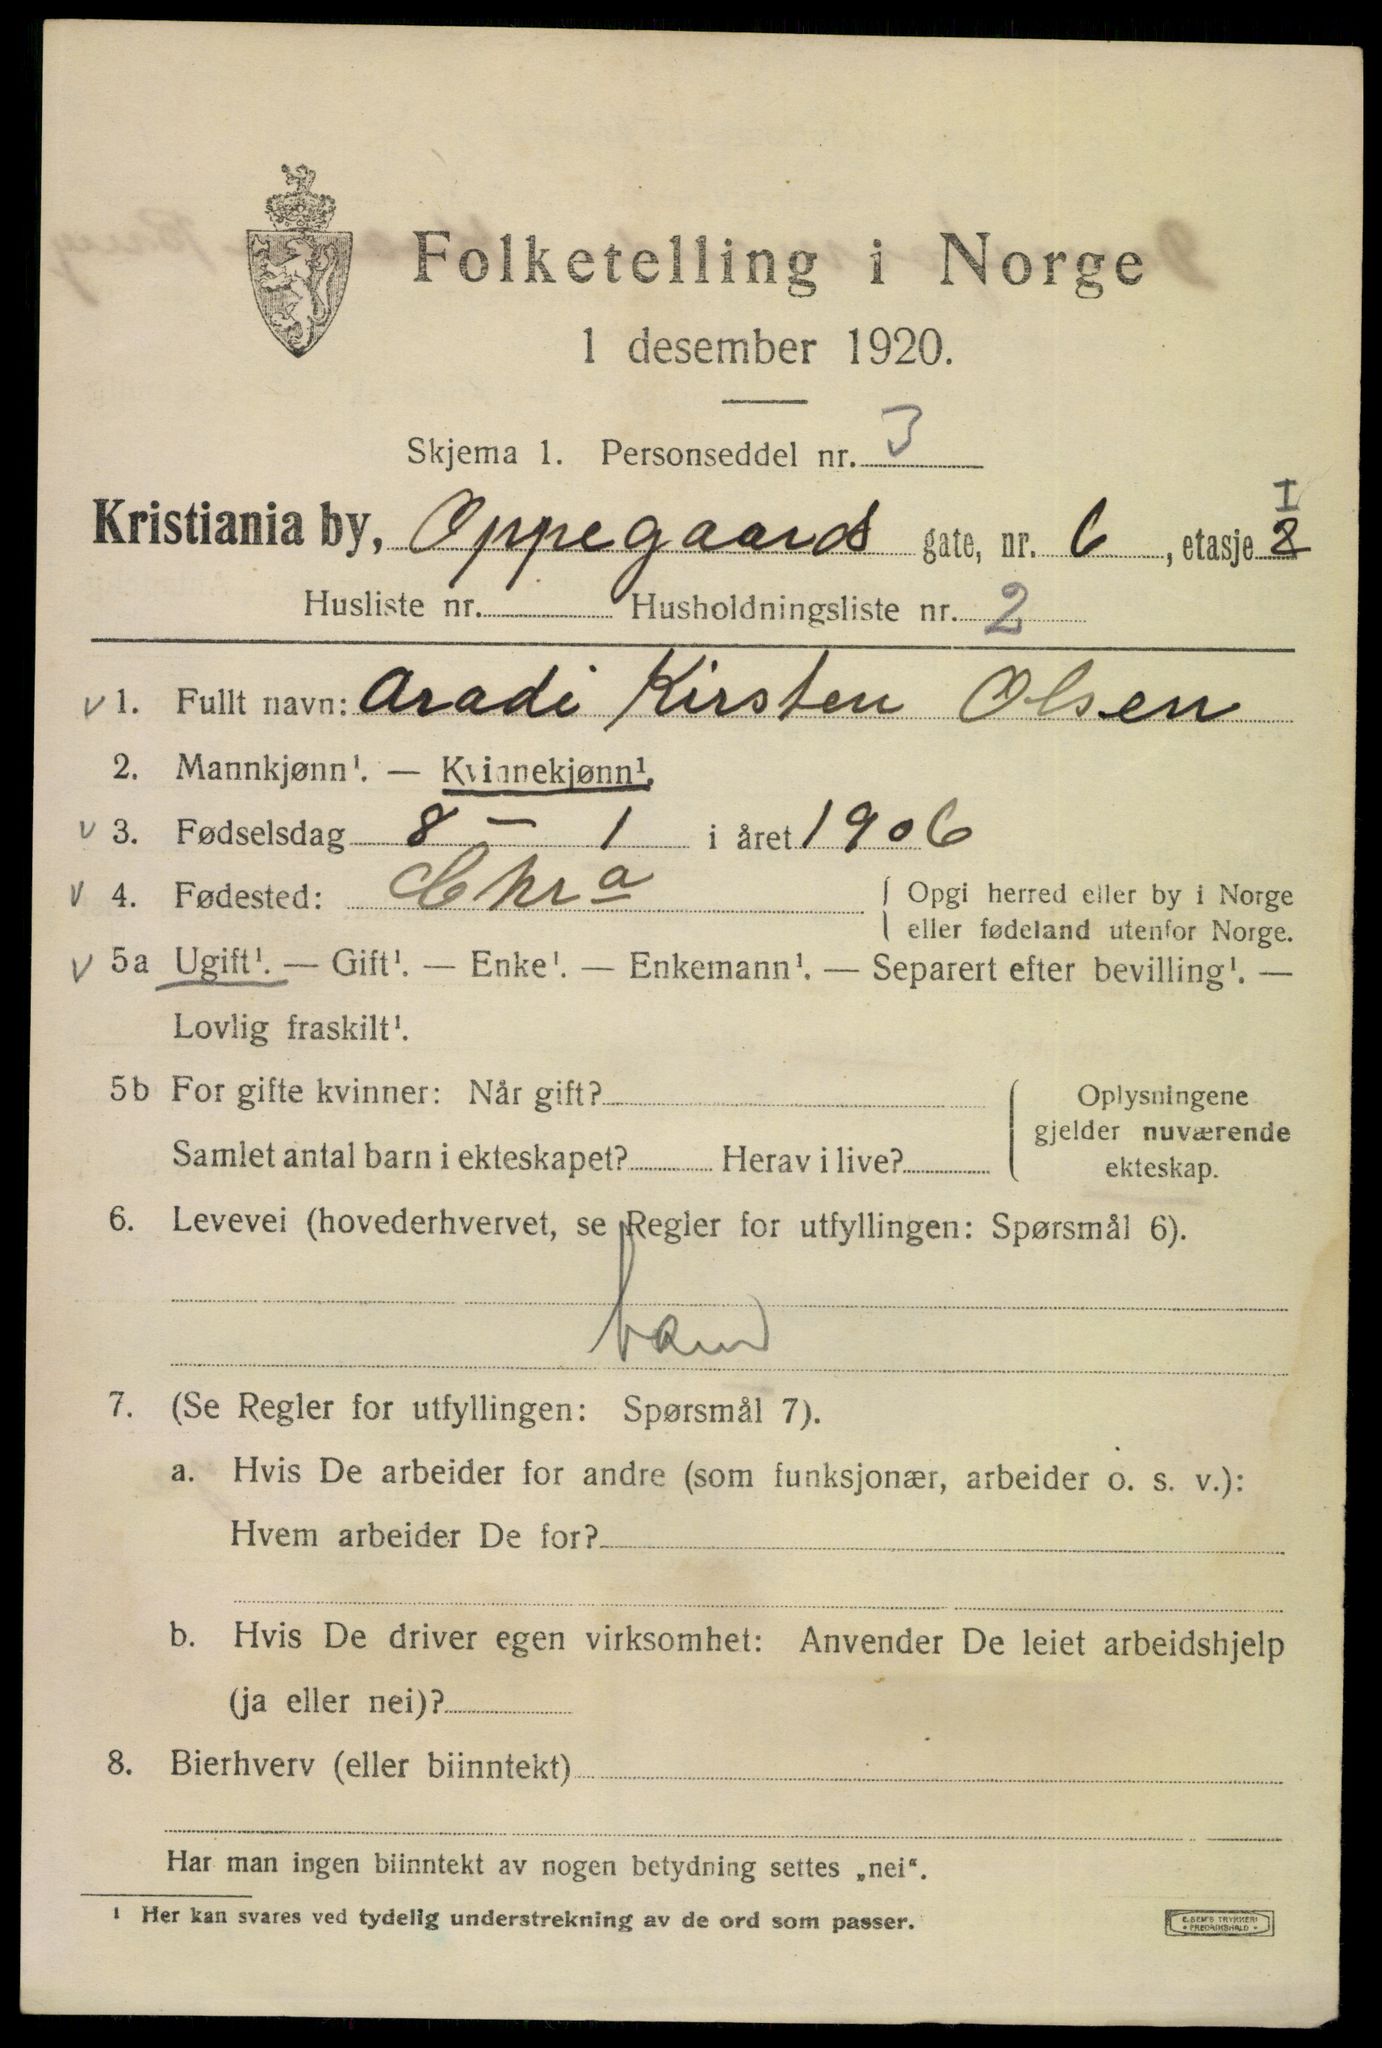 Folketelling i Norge
1 desember 1920.
Skjema 1. Personseddel nr. 3
I
Kristiania by, Oppegaards gate, nr. 6, etasje 2
Husliste nr. Husholdningsliste nr. 2
v 1. Fullt navn: Aradi Kirsten Olsen
2. Mannkjønn¹. — Kvinnekjønn¹.
v 3. Fødselsdag 8 – 1 i året 1906
v 4. Fødested: Chra { Opgi herred eller by i Norge
eller fødeland utenfor Norge.
v 5a Ugift¹. — Gift¹. — Enke¹. — Enkemann¹. — Separert efter bevilling¹. —
Lovlig fraskilt¹.
5b For gifte kvinner: Når gift? { Oplysningene
gjelder nuværende
Samlet antal barn i ekteskapet? Herav i live? ekteskap.
6. Levevei (hovederhvervet, se Regler for utfyllingen: Spørsmål 6).
barn
7. (Se Regler for utfyllingen: Spørsmål 7).
a. Hvis De arbeider for andre (som funksjonær, arbeider o. s. v.):
Hvem arbeider De for?
b. Hvis De driver egen virksomhet: Anvender De leiet arbeidshjelp
(ja eller nei)?
8. Bierhverv (eller biinntekt)
Har man ingen biinntekt av nogen betydning settes „nei“.
¹ Her kan svares ved tydelig understrekning av de ord som passer.
E. SEM'S TRYKKERI
• FREDRIKSHALD •